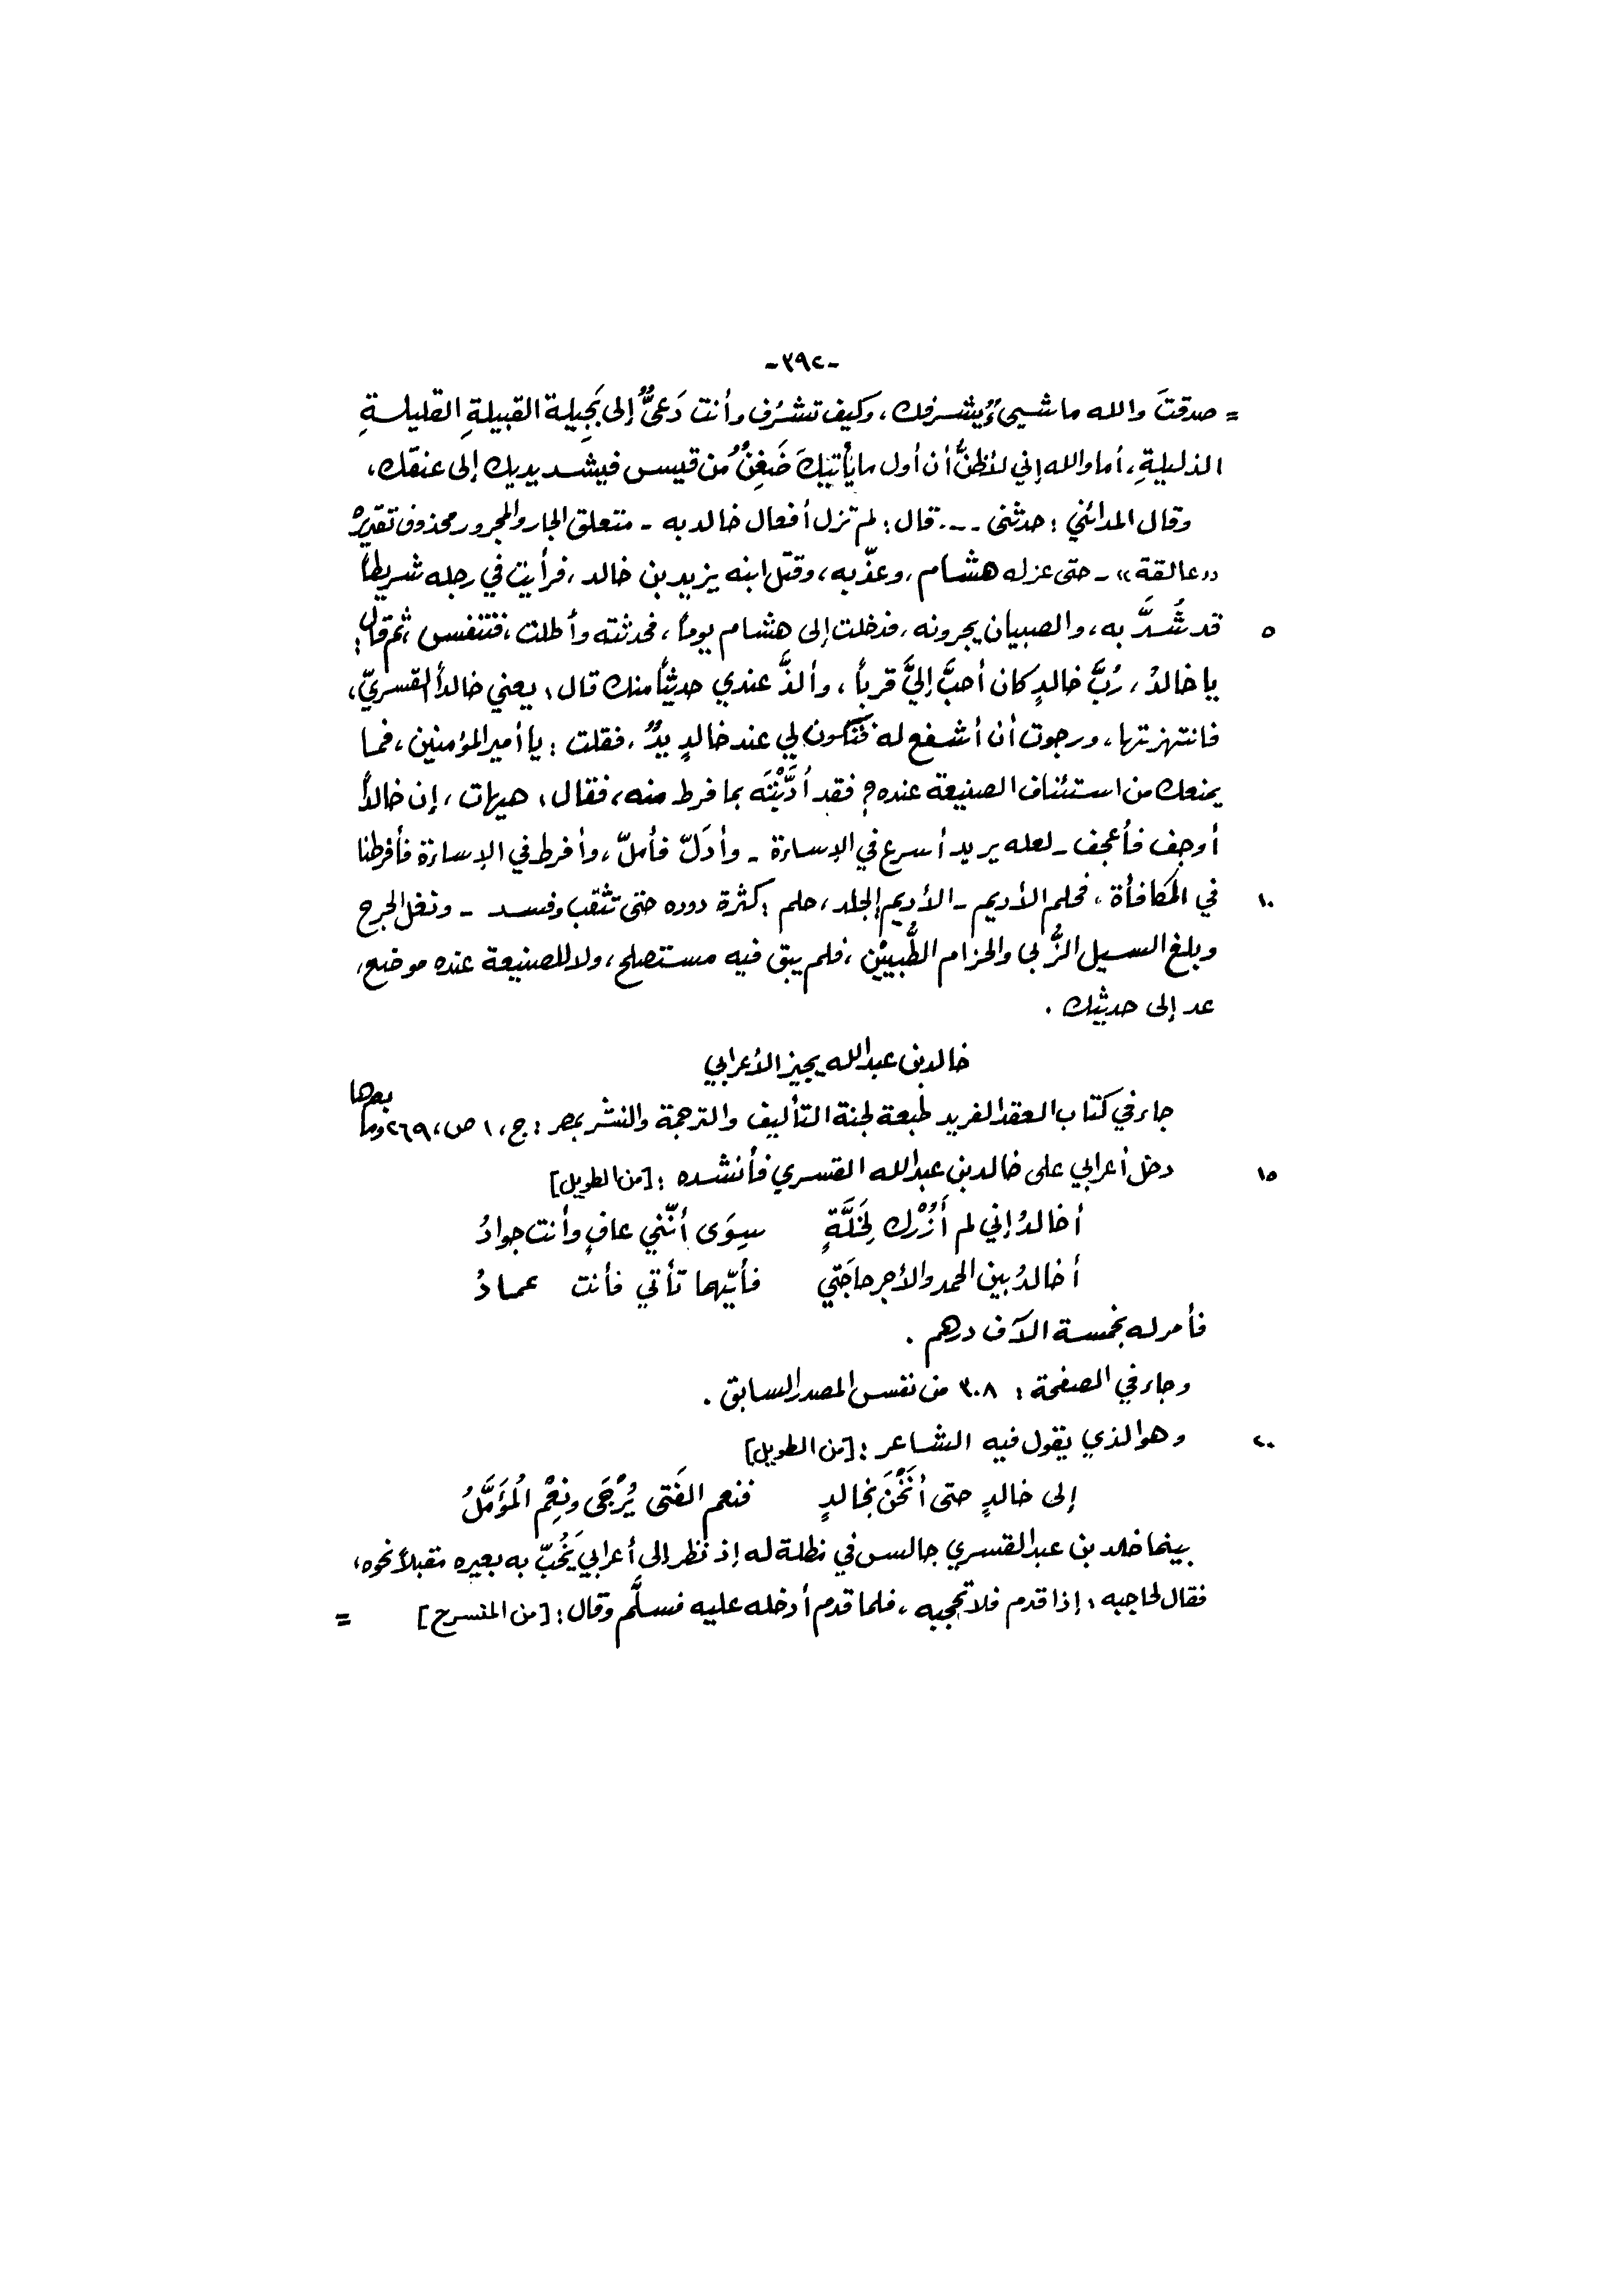 -٣٩٢-
= صدقتَ والله ما شيىءٌ يُشرفك، وكيف تشرُف وأنت دَعيٌّ إلى بَجِيلة القبيلةِ القليلةِ
الذليلةِ، أما والله إني لأظنُّ أن أول ما يأتيكَ ضَغِنٌ من قيس فيشد يديك إلى عنقك،
وقال المدائني: حدثني .... قال: لم تزل أفعال خالد به - متعلق الجار والمجرور محذوف تقديرهُ
((عالقة)) - حتى عزله هشام، وعذّبه، وقتل ابنه يزيد بن خالد، فرأيت في رجله شريطاً
٥ قد شُدَّ به، والصبيان يجرونه، فدخلت إلى هشام يوماً، فحدثته وأطلت، فتنفس ثم قال:
يا خالدُ، رُبَّ خالدٍ كان أحبَّ إليَّ قرباً، وألذَّ عندي حديثاً منك قال: يعني خالداً القسريّ،
فانتهزتها، ورجوت أن أشفع له فتكون لي عند خالدٍ يدٌ، فقلت: يا أمير المؤمنين، فما
يمنعك من استئناف الصنيعة عنده؟ فقد أدَّبْتَه بما فرط منه، فقال: هيهات، إن خالداً
أوجف فأعجف - لعله يريد أسرع في الإساءة - وأدَلّ فأملّ، وأفرط في الإساءة فأفرطنا
١٠ في المكافأة، فحلم الأديم - الأديم: الجلد، حلم: كثرة دوده حتى تثقب وفسد - ونغل الجرح
وبلغ السيل الزُّبى والحزام الطُّبيين، فلم يبق فيه مستصلح، ولا للصنيعة عنده موضع،
عد إلى حديثك .
خالد بن عبدالله يجيز الأعرابي
جاء في كتاب العقد الفريد طبعة لجنة التأليف والترجمة والنشر بمصر: ج، ١ ص، ٢٦٩ وما بعدها
١٥ دخل أعرابي على خالد بن عبدالله القسري فأنشده: [من الطويل]
أخالدُ إني لم أَزُرْك لِخَلَّةٍ سِوَى أنّني عافٍ وأنت جوادُ
أخالدُ بين الحمد والأجر حاجَتي فأيّهما تأتي فأنت عمادُ
فأمر له بخمسة الآف درهم .
وجاء في الصفحة: ٣٠٨ من نفس المصدر السابق .
٢٠ وهو الذي يقول فيه الشاعر: [من الطويل]
إلى خالدٍ حتى أنَخْنَ بخالدٍ فنعم الفَتى يُرْجَى ونِعْم المُؤَمَّلُ
بينما خلد بن عبد القسري جالس في مظلة له إذ نظر إلى أعرابي يَخُبّ به بعيره مقبلاً نحوه،
فقال لحاجبه: إذا قدم فلا تحجبه، فلما قدم أدخله عليه فسلَّم وقال: [من المنسرح] =